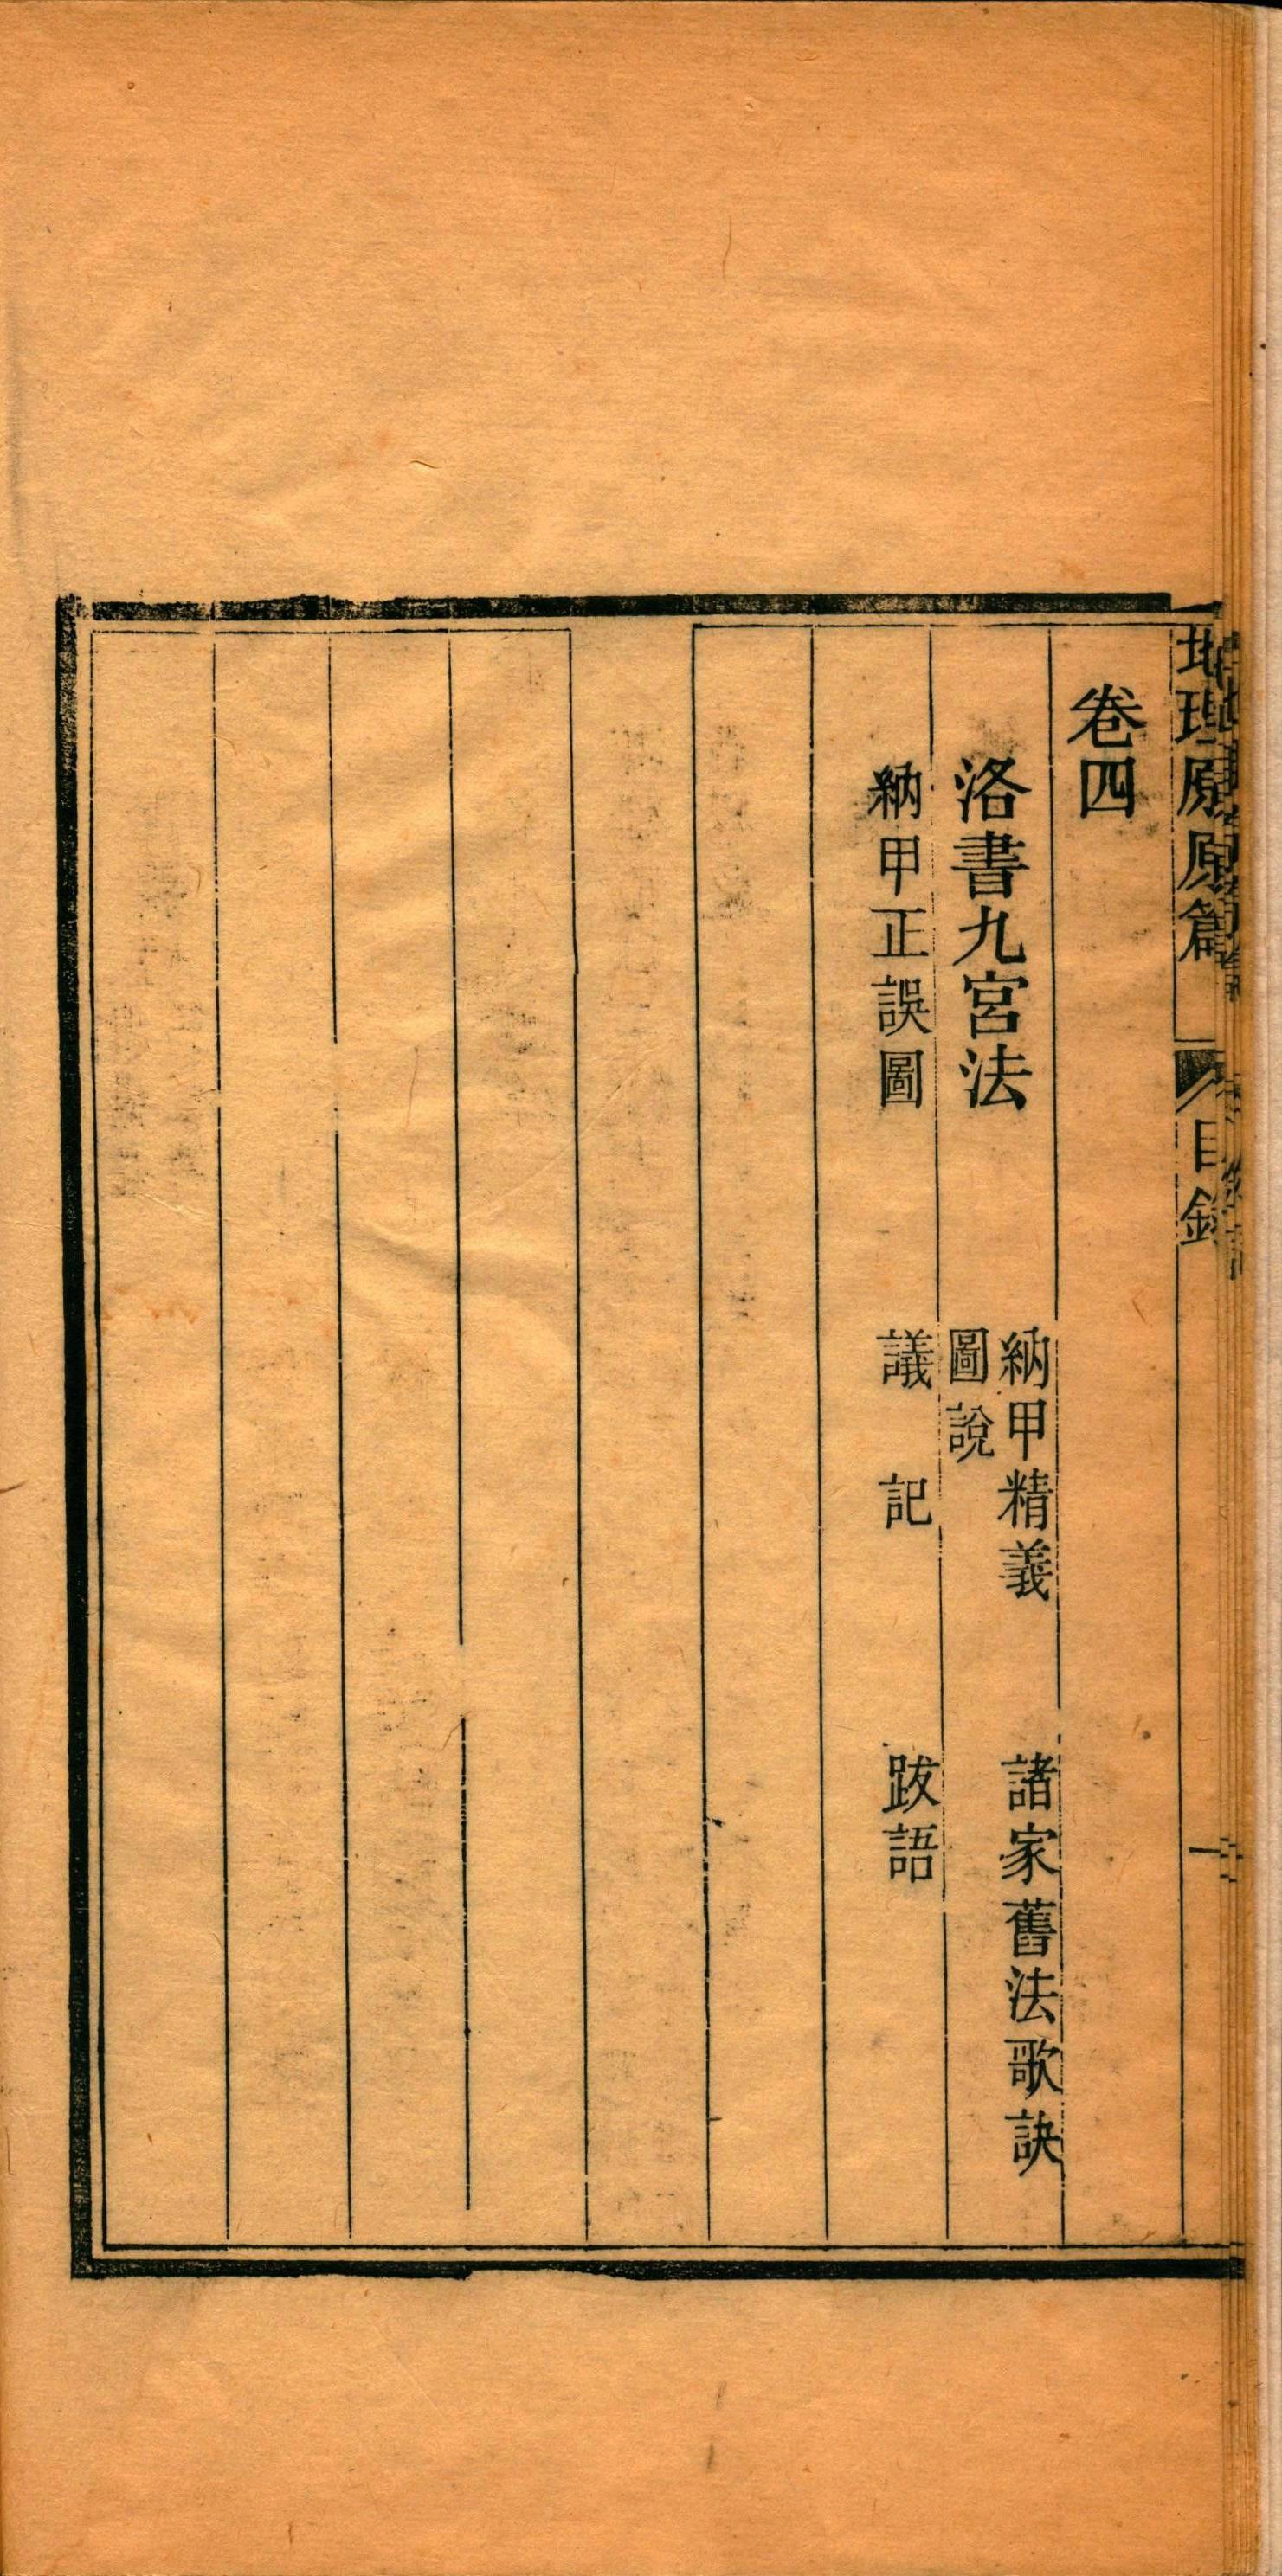 地理原原篇 目錄 一
卷四
洛書九宮法 納甲精義 諸家舊法歌訣
圖說
納甲正誤圖 議記 跋語